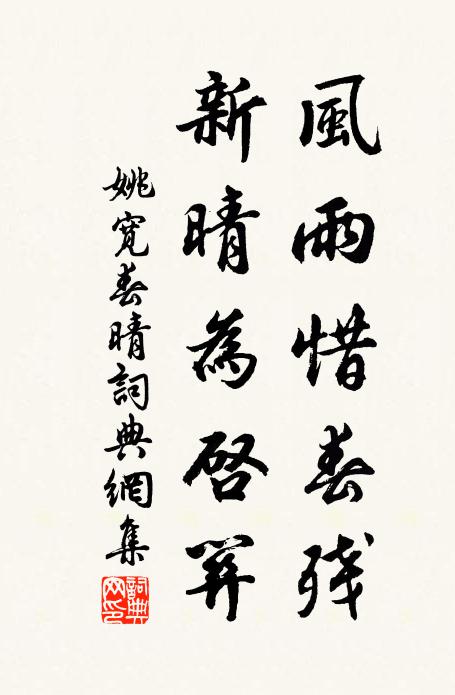 風雨惜春残
新晴為啓關
姚寬春晴詞典網集
詞典網印